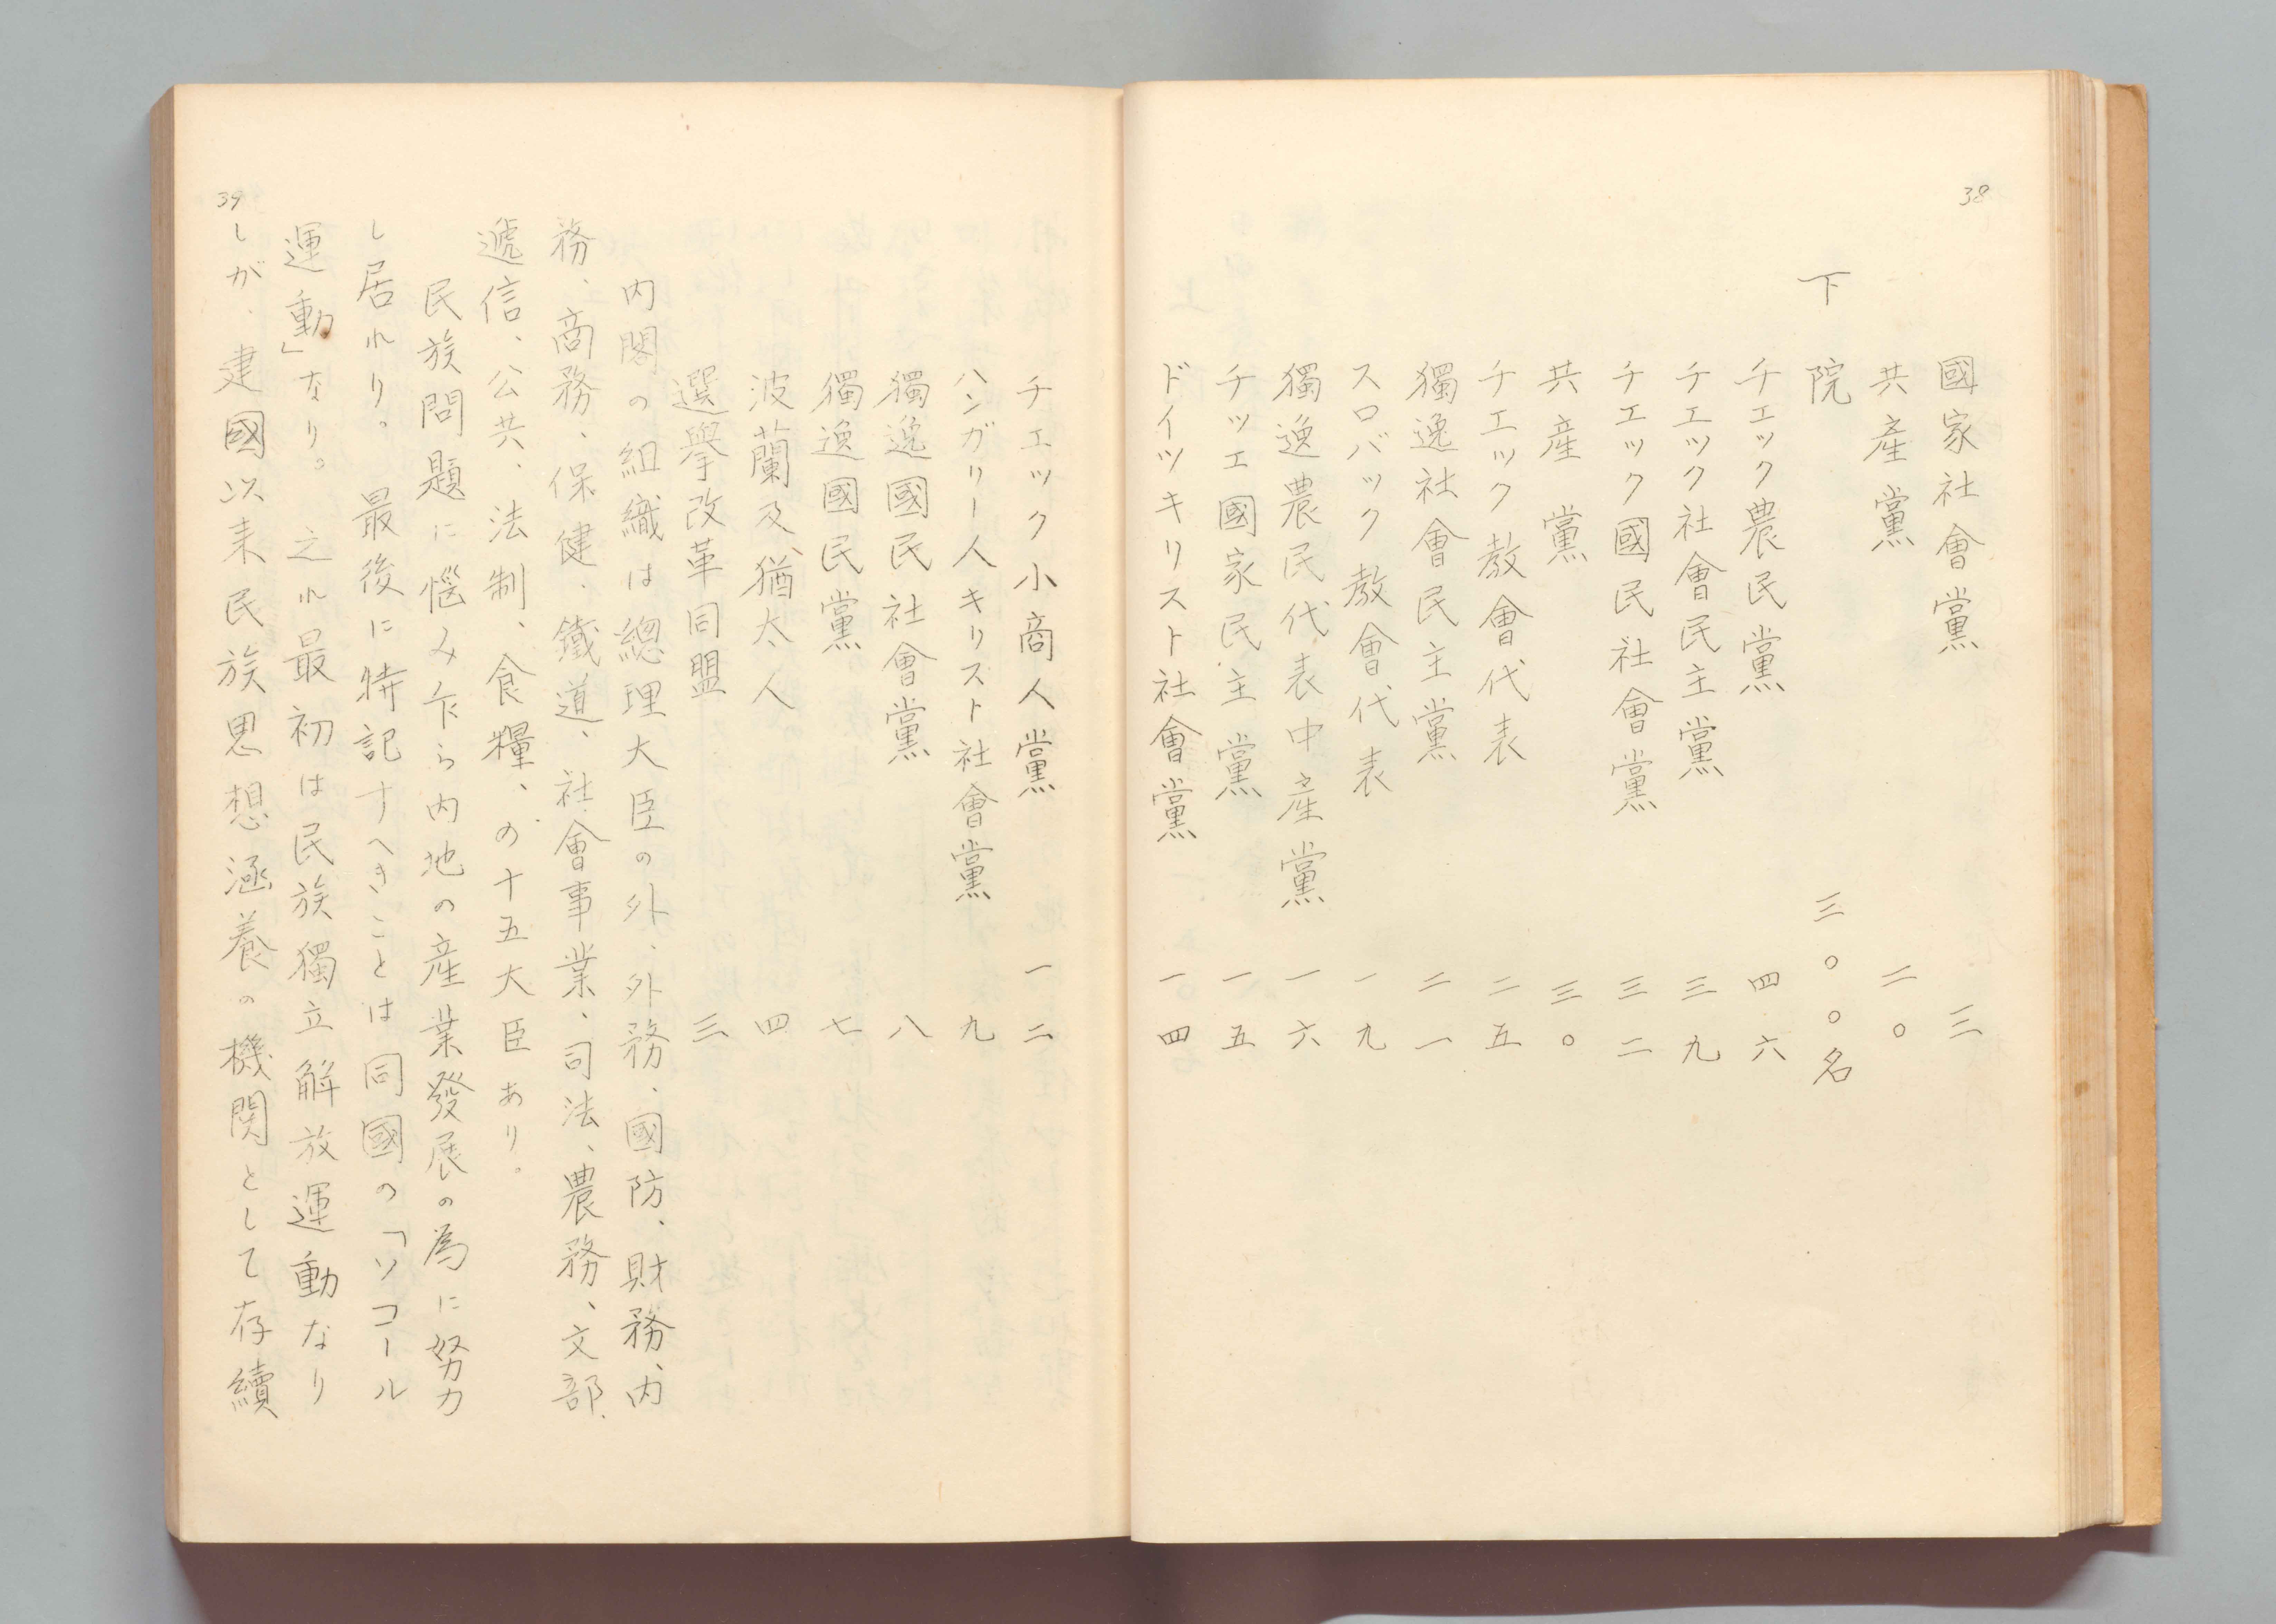 38
國家社會黨 三
共產黨 二〇
下院 三〇〇名
チエック農民黨 四六
チエック社會民主黨 三九
チエック國民社會黨 三二
共產黨 三〇
チエック教會代表 二五
獨逸社會民主黨 二一
スロバック教會代表 一九
獨逸農民代表中產黨 一六
チッエ國家民主黨 一五
ドイツキリスト社會黨 一四
チエック小商人黨 一二
ハンガリー人キリスト社會黨 九
獨逸國民社會黨 八
獨逸國民黨 七
波蘭及猶太人 四
選擧改革同盟 三
内閣の組織は總理大臣の外、外務、國防、財務、内
務、商務、保健、鐵道、社會事業、司法、農務、文部、
遞信、公共、法制、食糧、の十五大臣あり。
民族問題に惱み乍ら内地の產業發展の爲に努力
し居れり。最後に特記すへきことは同國の「ソコール
運動」なり。之れ最初は民族獨立解放運動なり
しが、建國以来民族思想涵養の機関として存續
39